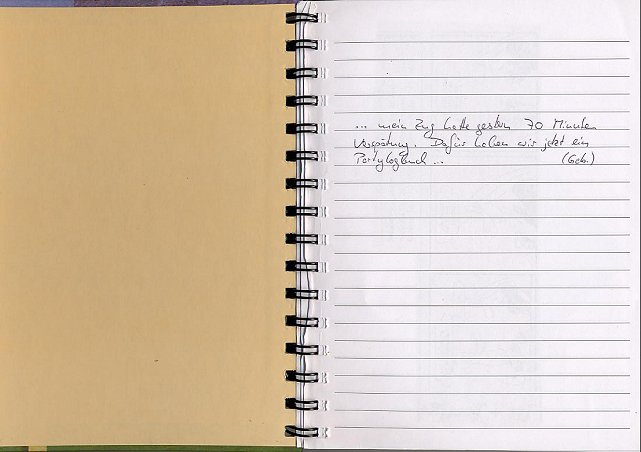 ... mein Zug hatte gestern 70 Minuten
Verspätung. Dafür haben wir jetzt ein
Partylogbuch ... (Geb.)